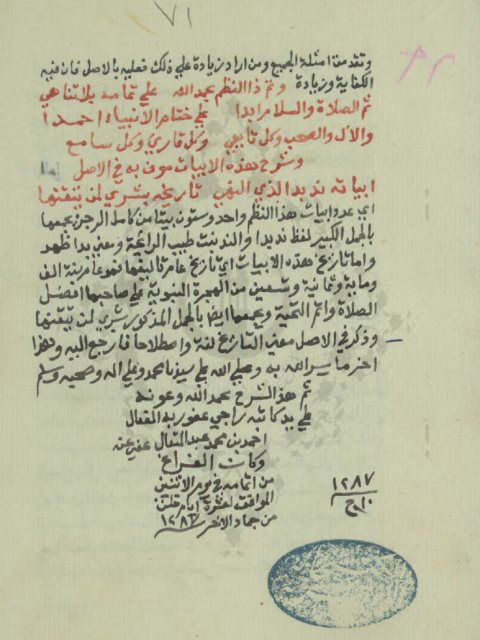 ٧١
وتقدمت امثلة الجميع ومن اراد زيادة على ذلك فعليه بالاصل فان فيه
الكفاية وزيادة وتم ذا النظم بحمد الله على تمامه بلا تناهي
ثم الصلاة والسلام ابدا على ختام الانبياء احمدا
والآل والصحب وكل تابعي وكل قاري وكل سامع
وشرح هذه الابيات موف به في الاصل
ابياته ند بدا لذي النهى تاريخه بشرى لمن يتقنها
اي عدد ابيات هذا النظم واحد وستون بيتا من كامل الرجز يجمعها
بالجمل الكبير لفظ ند بدا والند نبت طيب الرائحة ومعنى بدا ظهر
واما تاريخ هذه الابيات اي تاريخ عام تاليفها فهو عام مية الف
وماية وثمانية وتسعين من الهجرة النبوية على صاحبها افضل
الصلاة واتم التحية ويجمعها ايضا بالجمل المذكور بشرى لمن يتقنها
وذكر في الاصل معنى التاريخ لغة واصطلاحا فارجع اليه وهذا
اخر ما يسر الله به وصلى الله على سيدنا محمد وعلى اله وصحبه وسلم
تم هذا الشرح بحمد الله وعونه
على يد كاتبه راجي عفو ربه
احمد بن محمد عبد المتعال عفي عنه
وكان الفراغ
من اتمامه في يوم الاثنين
الموافق لعشرة ايام خلت
من جماد الاخر ١٢٨٧
١٢٨٧
١٠ ج